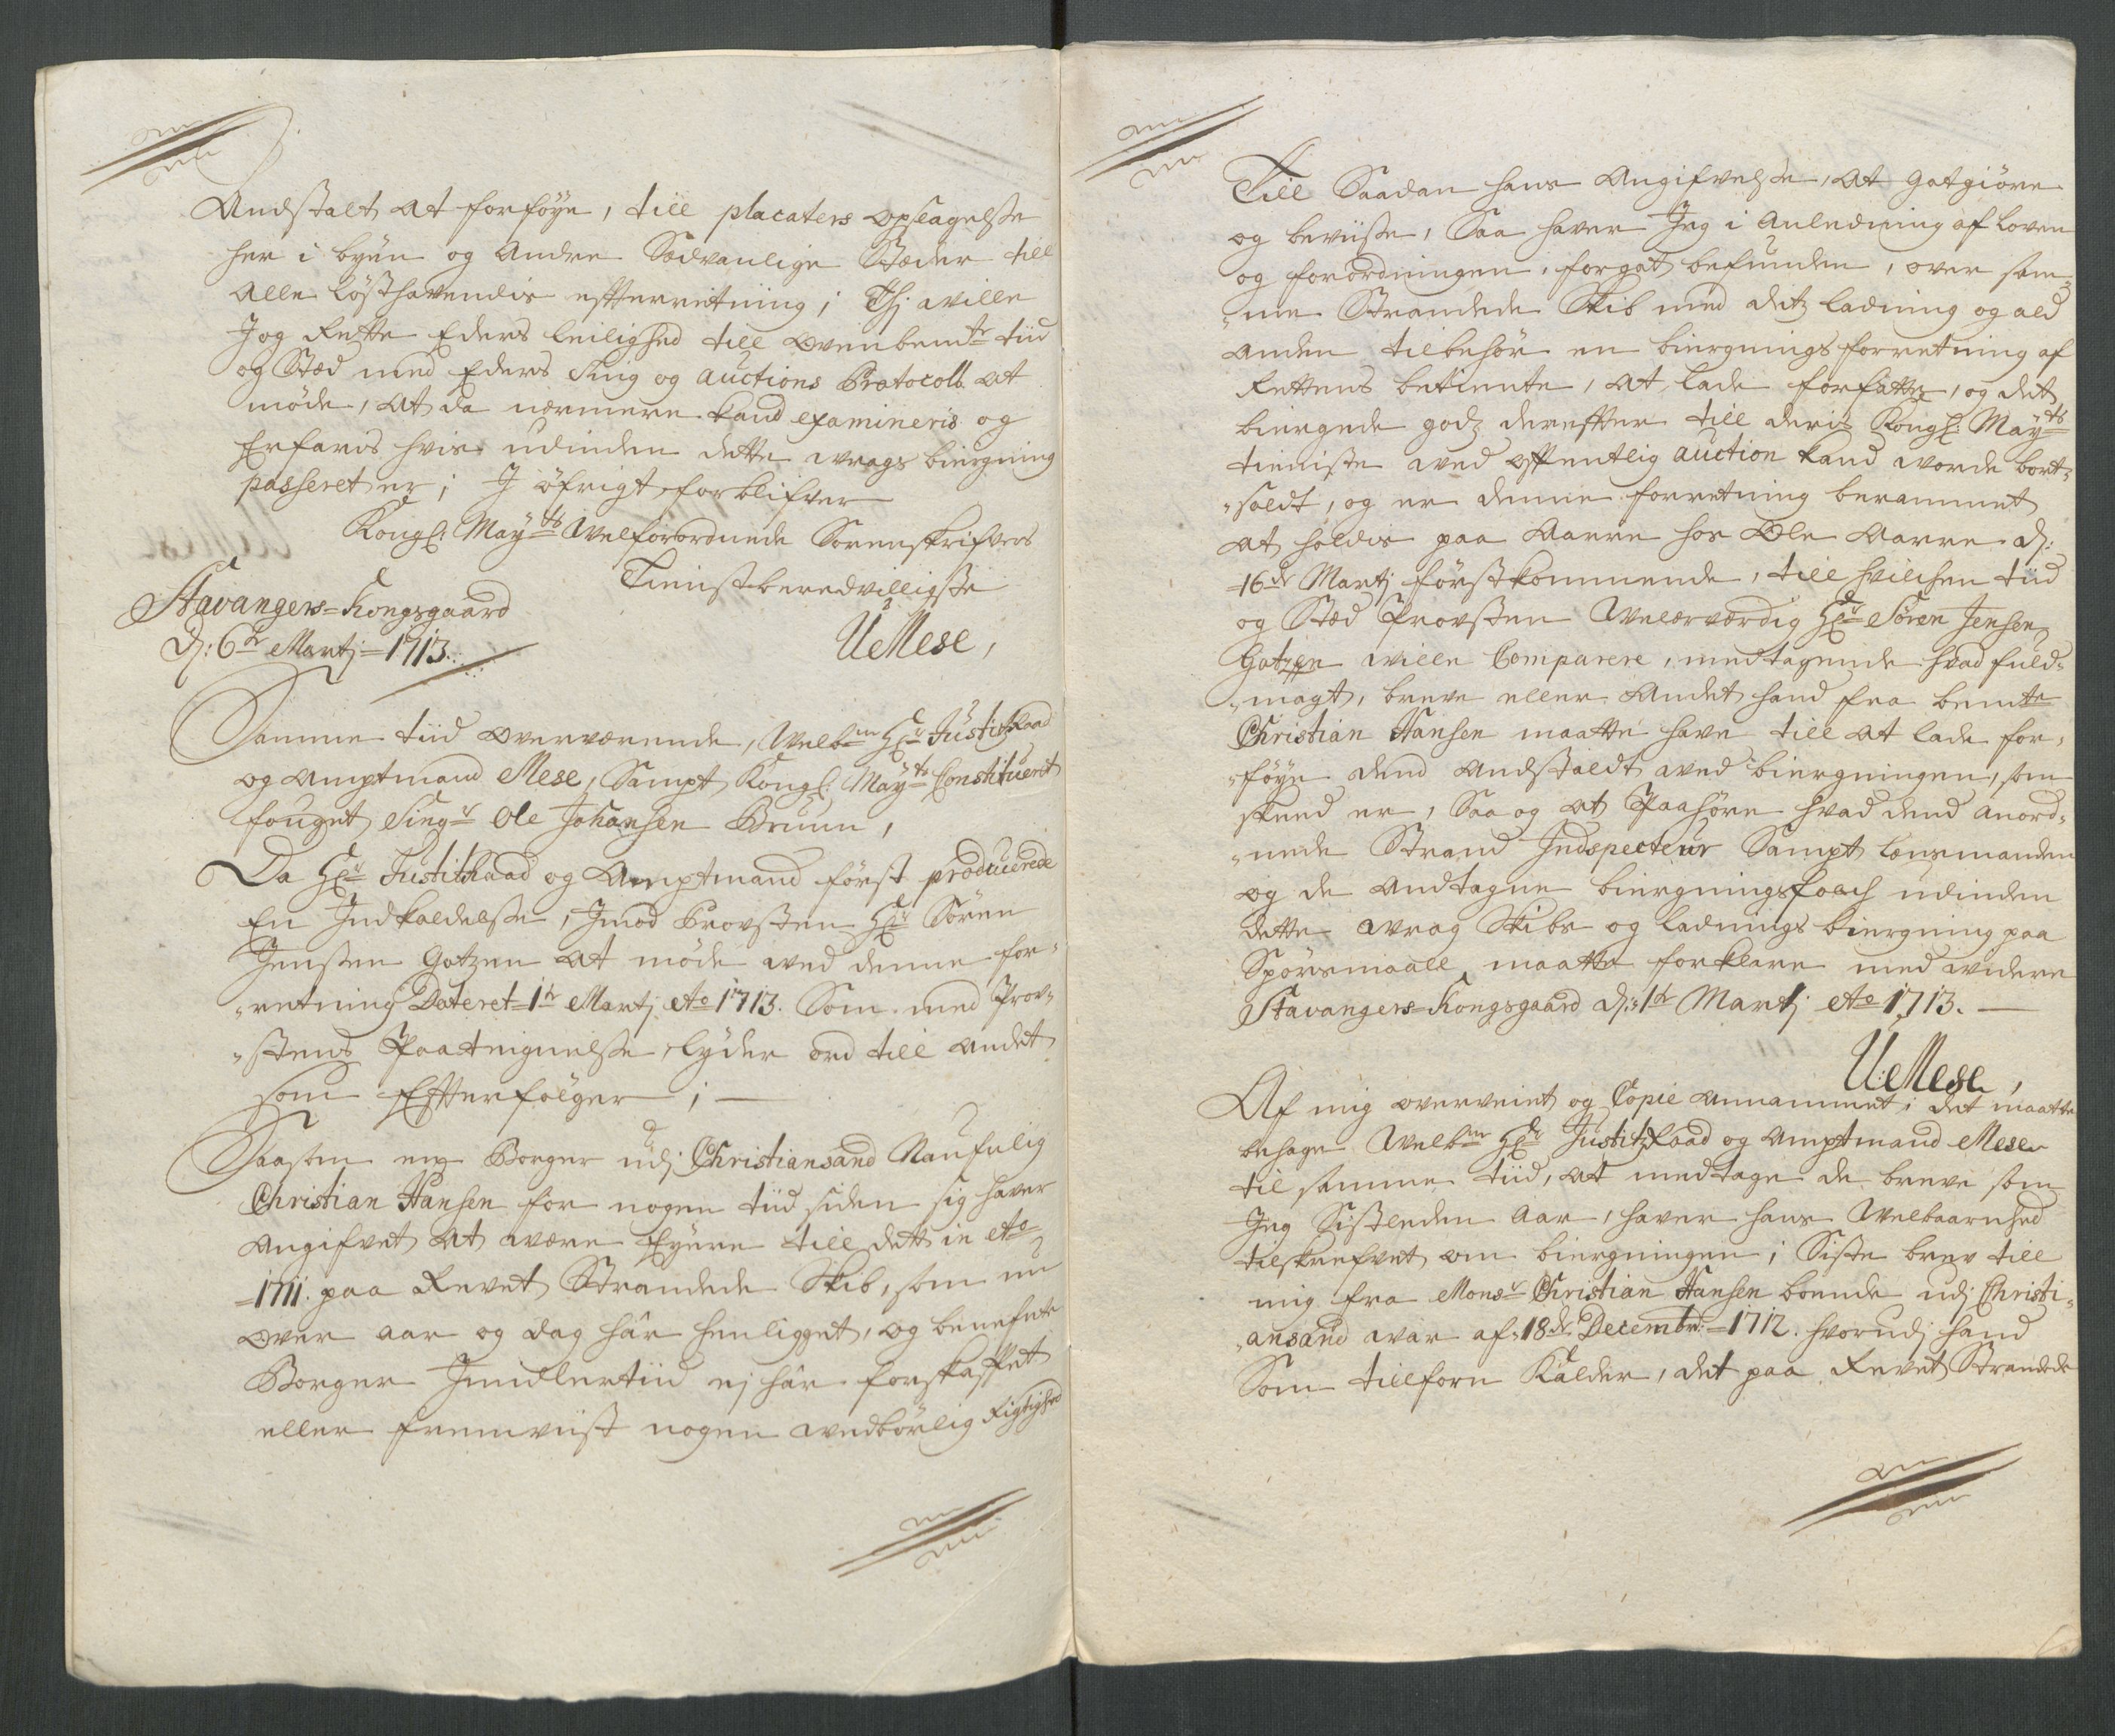 Andstalt at forføye, till placaters opslagelsse
her i byen og Andre Sædvanlige Stæder till
Alle løsthavendis effterretning; Thj wille
J og Rette Eders leilighed till ovenbemte tiid
og Stæd med Eders Ting og Auctions Protocoll at
møde, At da nermere kand examineris og
Erfaris hvis udinden dette wrags biergning
passeret er; J øfrigt forblifver
Kongl: Mayts Welforordnede Sorenskrifvers
Tienstberedvilligste
Stavangers-Kongsgaard
Dj: 6te Martj-1713.
UMese,
Samme tiid overværende, Welbne Hr Justitz Raad
og Amptmand Mese, Sampt Kongl: Mayts Constituerit
fouget Singr Ole Johansen Bruun,
Da Hr Justitzraad og Amptmand først producerede
En Indkaldelsse, Imod Provsten Hr Søren
Jenssen Gotzen at møde wed denne for-
"retning Dateret-1te Martj Ao 1713. Som med Prov-
"stens Paateignelsse lyder ord till andet
som Effterfølger; —
Saasom en Borger udj Christiansand Naufnlig
Christian Hansen for nogen tiid siden sig haver
Angifvet at være Eyere till dett in Ao
-1711. paa Revet Strandede Skib, som nu
over aar og dag hâr henligget, og benefnte
Borger Imidlertiid ej hâr forskaffet
eller fremviist nogen wedbørlig Rigtighed
Till Saadan hans Angifvelsse, at Gotgiøre
og beviisse, Saa haver Jeg i Anledning af loven
og forordningen, forgot befunden, over sam-
"me Strandede Skib med ditz ladning og ald
anden tilbehør en biergnings forretning af
Rettens betiente, at lade forfatte, og det
biergede godz dereffter till deris Kongl: Mayts
tieniste wed offentlig auction kand worde bort-
"soldt, og er denne forretning berammet
at holdis paa Aarre hos Ole Aarre dj:
-16de Martj førstkommende, till hvilchen tiid
og Stæd Provsten Welærværdig Hr Søren Jensen
Gotzen wille Comparere, medtagende hvad fuld-
"magt, breve eller Andet hand fra bemte
Christian Hansen maatte have till at lade for-
"føye dend Andstaldt wed biergningen, som
skeed er, Saa og at Paahøre hvad dend anord-
"nede Strand Indspecteur Sampt lensmanden
og de Andtagne biergningsfolch udinden
dette wrag Skibs og ladnings biergning paa
Spørsmaall maatte forklare med widere
Stavangers-Kongsgaard dj: 1te Martj Ao 1713. —
U:Mese,
Af mig oververet og Copie annammet; det maatte
behage Welbne Hr Justitz Raad og Amptmand Mese
til samme tiid, at medtage de breve som
Jeg Sistleden Aar, haver hans Welbaarnhed
tilskrefvet om biergningen; Siste brev till
mig fra Monsr Christian Hansen boende udj Christi-
"ansand war af-18de Decembr:-1712. hvorudj hand
Som tillforn Kalder, det paa Revet Strandede